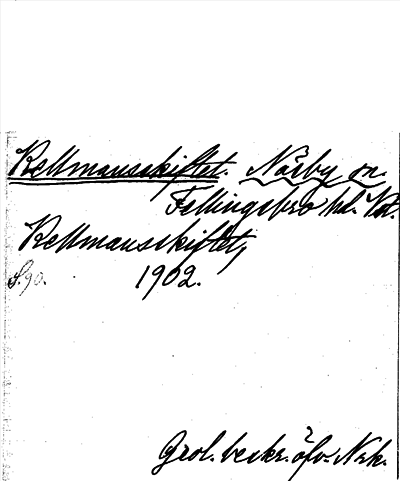 Kellmansskiftet. Näsby sn.
Fellingsbro hd. Vst.
Kellmansskiftet,
S. 90. 1902.
Geol. beskr. öfv. Nrk.